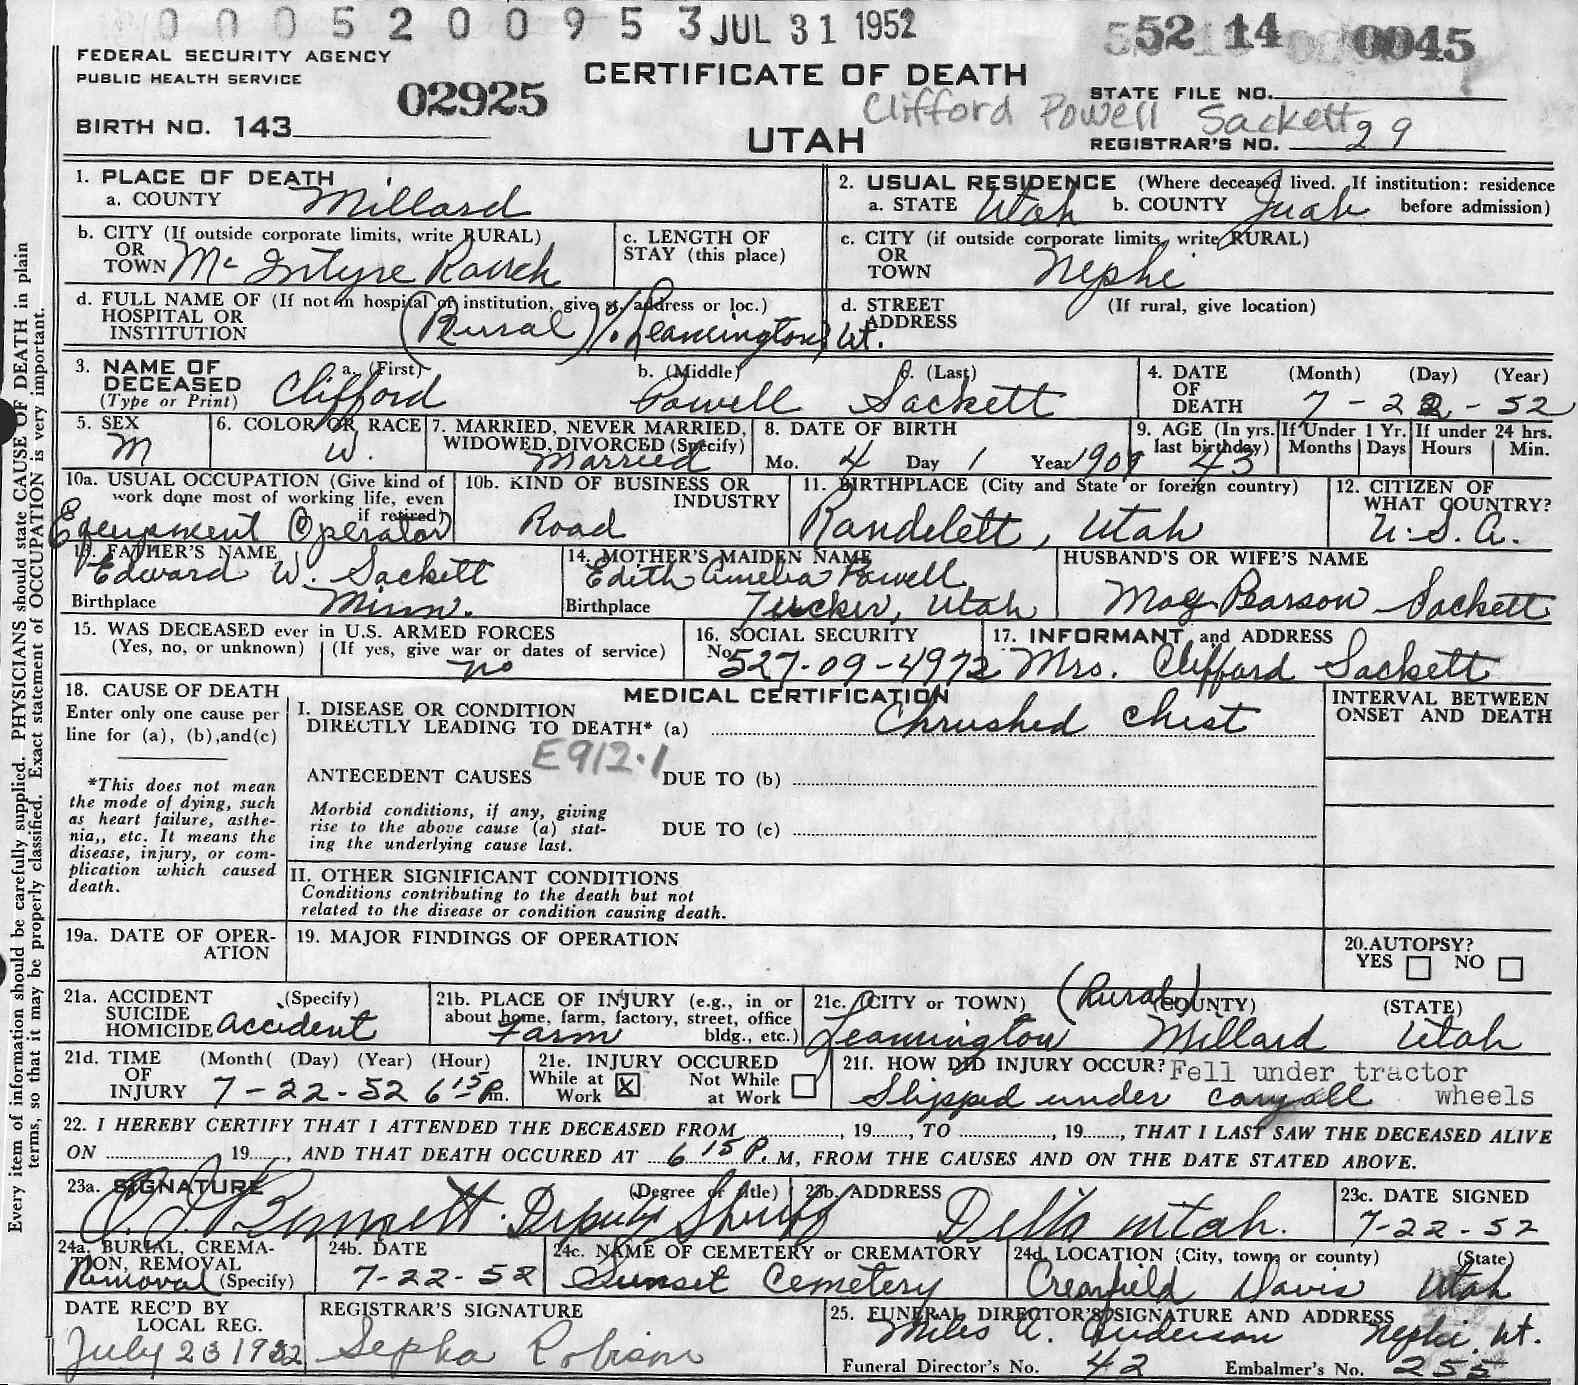 0 0 0 5 2 0 0 9 5 3 JUL 31 1952 52 14 0045
FEDERAL SECURITY AGENCY
PUBLIC HEALTH SERVICE
02925
CERTIFICATE OF DEATH
STATE FILE NO.
Clifford Powell Sackett
BIRTH NO. 143
UTAH
REGISTRAR'S NO. 29
1. PLACE OF DEATH
a. COUNTY Millard
2. USUAL RESIDENCE (Where deceased lived. If institution: residence before admission)
a. STATE Utah b. COUNTY Juab
b. CITY (If outside corporate limits, write RURAL) OR TOWN Mc Intyre Ranch
c. LENGTH OF STAY (this place)
c. CITY (if outside corporate limits, write RURAL) OR TOWN Nephi
d. FULL NAME OF HOSPITAL OR INSTITUTION (If not in hospital or institution, give st. address or loc.) (Rural) Leamington, Ut.
d. STREET ADDRESS (If rural, give location)
3. NAME OF DECEASED (Type or Print)
a. (First) Clifford b. (Middle) Powell c. (Last) Sackett
4. DATE OF DEATH (Month) (Day) (Year) 7 - 22 - 52
5. SEX M
6. COLOR OR RACE W.
7. MARRIED, NEVER MARRIED, WIDOWED, DIVORCED (Specify) Married
8. DATE OF BIRTH Mo. 4 Day 1 Year 1909
9. AGE (In yrs. last birthday) 43
If Under 1 Yr. Months Days
If under 24 hrs. Hours Min.
10a. USUAL OCCUPATION (Give kind of work done most of working life, even if retired) Equipment Operator
10b. KIND OF BUSINESS OR INDUSTRY Road
11. BIRTHPLACE (City and State or foreign country) Randelett, Utah
12. CITIZEN OF WHAT COUNTRY? U.S.A.
13. FATHER'S NAME Edward W. Sackett
Birthplace Minn.
14. MOTHER'S MAIDEN NAME Edith Amelia Powell
Birthplace Tucker, Utah
HUSBAND'S OR WIFE'S NAME
Pearson Sackett
15. WAS DECEASED ever in U.S. ARMED FORCES
(Yes, no, or unknown) (If yes, give war or dates of service)
no
16. SOCIAL SECURITY No. 527-09-4972
17. INFORMANT and ADDRESS
Mrs. Clifford Sackett
18. CAUSE OF DEATH
Enter only one cause per line for (a), (b),and(c)
*This does not mean the mode of dying, such as heart failure, asthenia,, etc. It means the disease, injury, or complication which caused death.
MEDICAL CERTIFICATION
I. DISEASE OR CONDITION DIRECTLY LEADING TO DEATH* (a) Chrushed Chest
E912.1
ANTECEDENT CAUSES DUE TO (b)
Morbid conditions, if any, giving rise to the above cause (a) stating the underlying cause last.
DUE TO (c)
II. OTHER SIGNIFICANT CONDITIONS
Conditions contributing to the death but not related to the disease or condition causing death.
INTERVAL BETWEEN ONSET AND DEATH
19a. DATE OF OPERATION
19. MAJOR FINDINGS OF OPERATION
20. AUTOPSY?
YES NO
21a. ACCIDENT SUICIDE HOMICIDE (Specify) accident
21b. PLACE OF INJURY (e.g., in or about home, farm, factory, street, office bldg., etc.) Farm
21c. (CITY or TOWN) (COUNTY) (STATE)
(Rural) Leamington Millard Utah
21d. TIME OF INJURY (Month( (Day) (Year) (Hour) 7-22-52 6 15 P.m.
21e. INJURY OCCURED
While at Work X Not While at Work
21f. HOW DID INJURY OCCUR? Fell under tractor wheels
Slipped under caryall
22. I HEREBY CERTIFY THAT I ATTENDED THE DECEASED FROM , 19 , TO , 19 , THAT I LAST SAW THE DECEASED ALIVE
ON 19 , AND THAT DEATH OCCURED AT 6 15 P. M, FROM THE CAUSES AND ON THE DATE STATED ABOVE.
23a. SIGNATURE (Degree or title) Deputy Sheriff
23b. ADDRESS Delta utah.
23c. DATE SIGNED 7-22-52
24a. BURIAL, CREMATION, REMOVAL (Specify) Removal
24b. DATE 7-22-52
24c. NAME OF CEMETERY or CREMATORY
Sunset Cemetery
24d. LOCATION (City, town, or county) (State)
Clearfield Davis Utah
DATE REC'D BY LOCAL REG.
July 23 1952
REGISTRAR'S SIGNATURE
Sepha Robison
25. FUNERAL DIRECTOR'S SIGNATURE AND ADDRESS
Miles A. Anderson Nephi, Ut.
Funeral Director's No. 42 Embalmer's No. 255
Every item of information should be carefully supplied. PHYSICIANS should state CAUSE OF DEATH in plain
terms, so that it may be properly classified. Exact statement of OCCUPATION is very important.